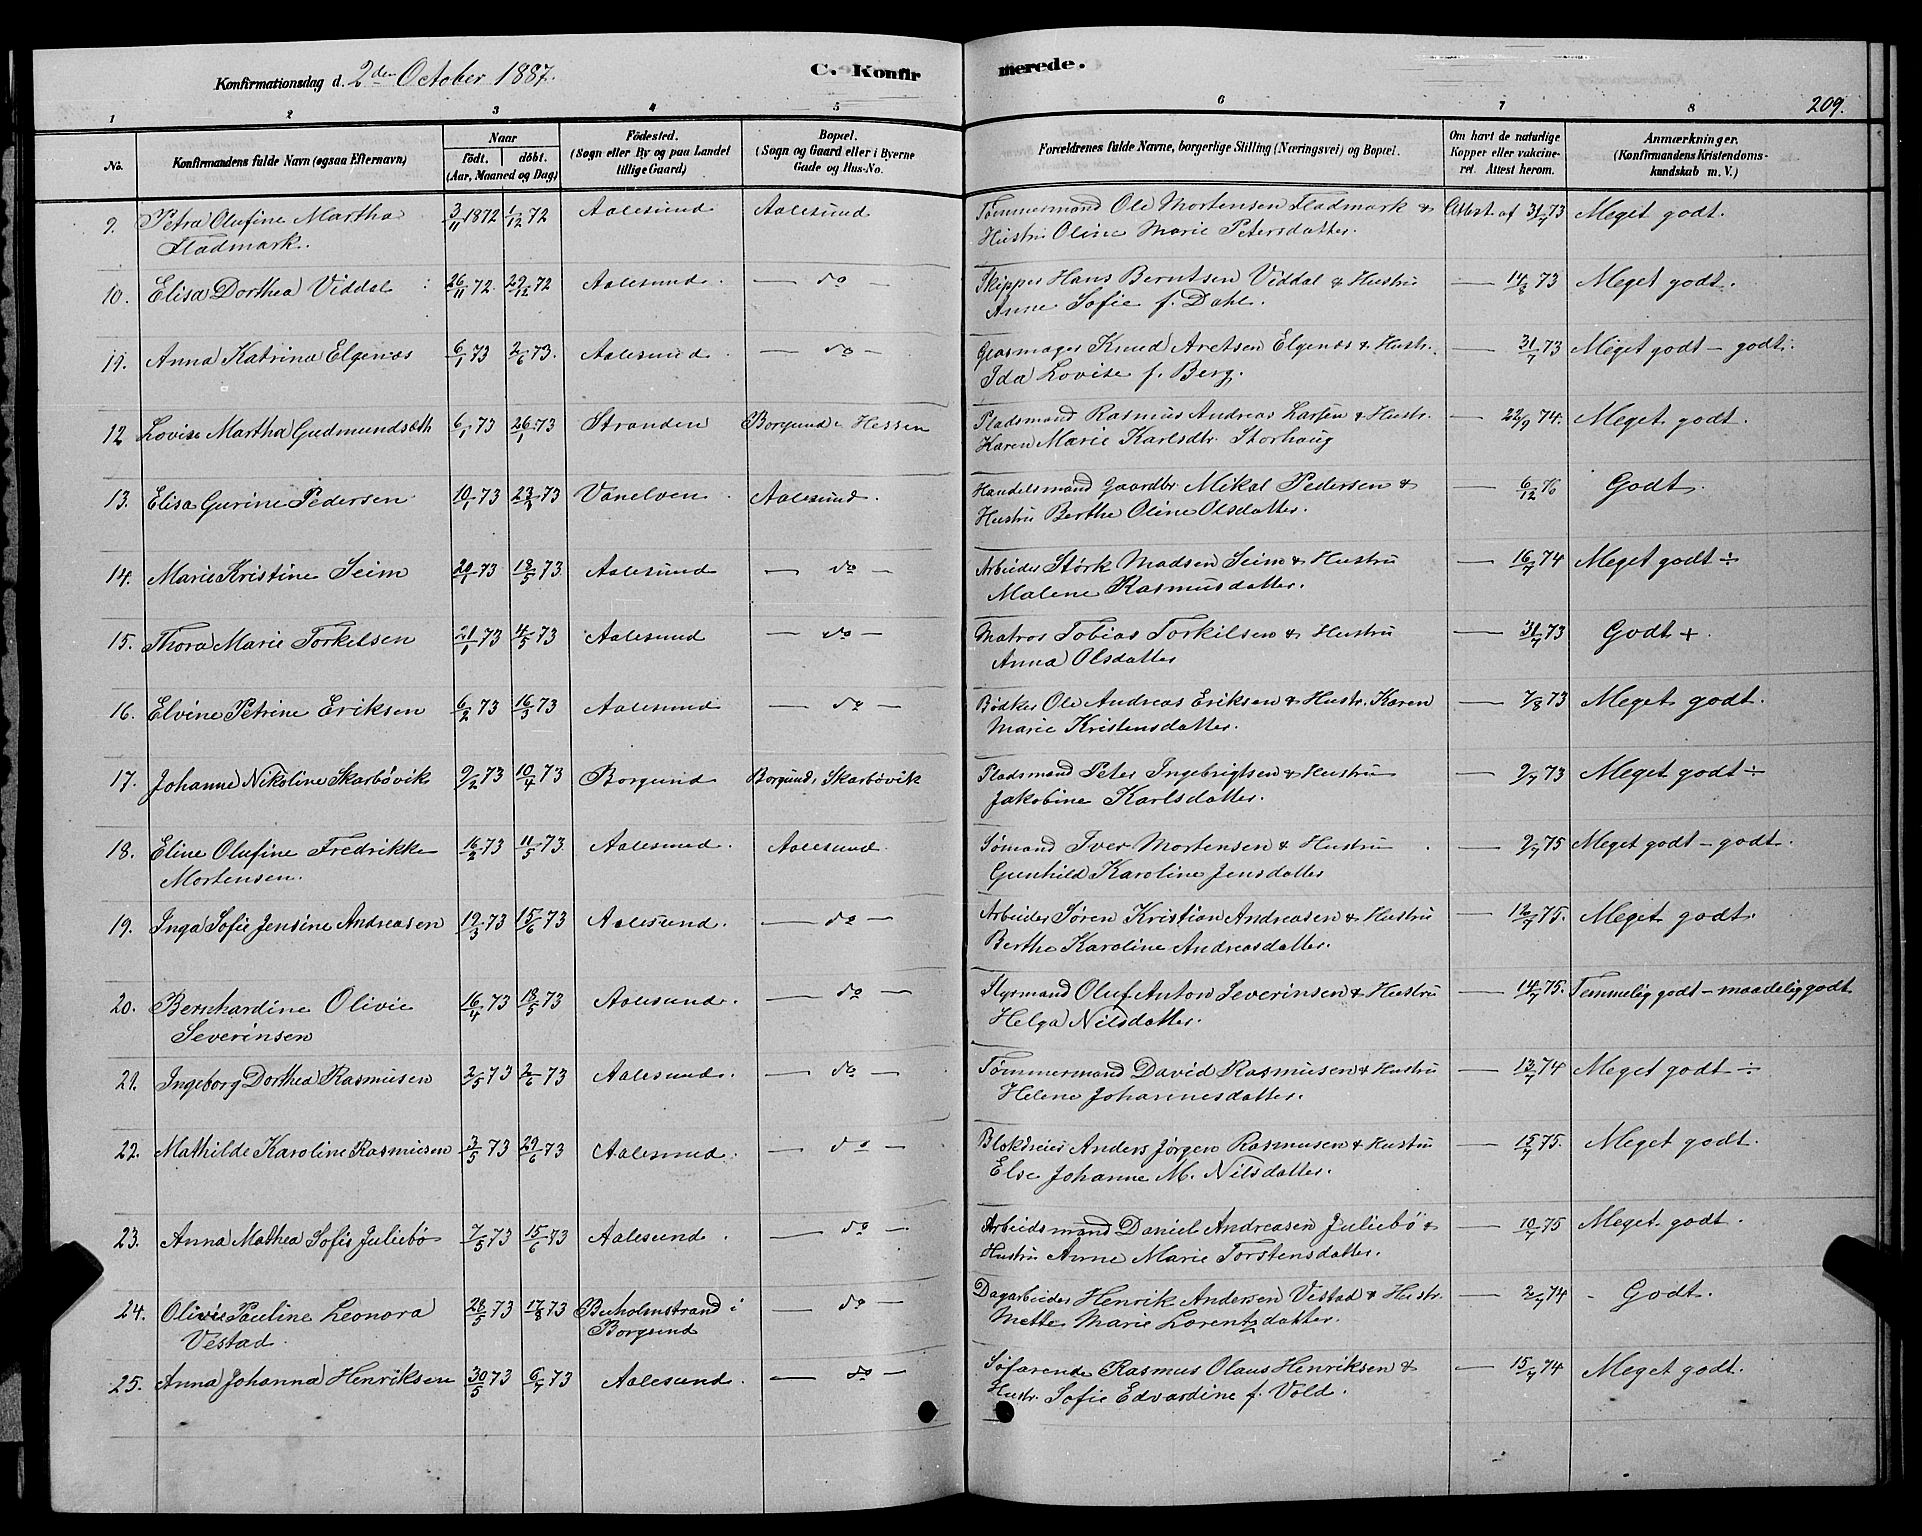 Konfirmationsdag d. 2den October 1887.
C. Konfirmerede.
209.
1 2 3 4 5 6 7 8
No. Konfirmandens fulde Navn (ogsaa Efternavn) Naar födt. döbt. (Aar, Maaned og Dag) Födested. (Sogn eller By og paa Landet tillige Gaard) Bopæl. (Sogn og Gaard eller i Byerne Gade og Hus-No. Forældrenes fulde Navne, borgerlige Stilling (Næringsvei) og Bopæl. Om havt de naturlige Kopper eller vakcineret. Attest herom. Anmærkninger. (Konfirmandens Kristendomskundskab m. V.)
9. Petra Olufine Martha 3/11 1872 1/12 72 Aalesund Aalesund Tømmermand Ole Mortensen Fladmark & Attest af 31/7 73 Meget godt.
Fladmark. Hustru Oline Marie Petersdatter.
10. Elisa Dorthea Viddal 26/11 72. 29/12 72 Aalesund. — do — Skipper Hans Berntsen Viddal & Hustru — 14/8 73 Meget godt.
Anne Sofie f. Dahl.
11. Anna Katrina Elgenæs 6/1 73 2/6 73. Aalesund. — do — Glasmager Knud Aretsen Elgenæs & Hustr. — 31/7 73 Meget godt - godt.
Ida Lovise f. Berg.
12 Lovise Martha Gudmundsæth 6/1 73 26/1 73 Stranden Borgund. Hessen Pladsmand Rasmus Andreas Larsen & Hustr. — 22/9 74. Meget godt.
Karen Marie Karlsdtr. Storhaug
13. Elisa Gurine Pedersen 10/1 73 23/3 73 Vanelven. Aalesund. Handelsmand Gaardbr. Mikal Pedersen & — 6/12 76 Godt.
Hustru Berthe Oline Olsdatter.
14. Marie Kristine Seim 20/1 73 18/5 73. Aalesund — do — Arbeider Størk Madsen Seim & Hustru — 16/7 74 Meget godt ÷
Malene Rasmusdatter.
15. Thora Marie Torkelsen 21/1 73 4/5 73 Aalesund — do — Matros Tobias Torkilsen & Hustru — 31/7 73 Godt +.
Anna Olsdatter
16. Elvine Petrine Eriksen 6/2 73 16/3 73 Aalesund — do — Bødker Ole Andreas Eriksen & Hustr. Karen — 7/8 73 Meget godt.
Marie Kristensdatter.
17. Johanne Nikoline Skarbövik 9/2 73 10/4 73 Borgund Borgund. Skarbövik Pladsmand Peter Ingebrigtsen & Hustru — 2/7 73 Meget godt ÷
Jakobine Karlsdatter.
18. Eline Olufine Fredrikke 16/2 73 11/5 73 Aalesund. Aalesund. Sømand Iver Mortensen & Hustru — 2/7 75 Meget godt - godt.
Mortensen. Gunhild Karoline Jensdatter
19. Inga Sofie Jensine Andreasen 19/3 73 15/6 73 Aalesund. — do — Arbeider Søren Kristian Andreasen & Hustru — 12/7 75. Meget godt.
Berthe Karoline Andreasdatter.
20. Bernhardine Olivie 16/4 73 18/5 73 Aalesund. — do — Styrmand Oluf Anton Severinsen & Hustru — 14/7 75. Temmelig godt - maadelig godt
Severinsen Helga Nilsdatter.
21. Ingeborg Dorthea Rasmusen 2/5 73 2/6 73 Aalesund. — do — Tømmermand David Rasmusen & Hustru — 13/7 74 Meget godt ÷
Helene Johannesdatter.
22. Mathilde Karoline Rasmusen 3/5 73 29/6 73 Aalesund. — do — Blokdreier Anders Jørgen Rasmusen & Hustru — 15/7 75. Meget godt.
Else Johanne M. Nilsdatter.
23. Anna Mathea Sofie Juliebö 7/5 73 15/6 73 Aalesund. — do — Arbeidsmand Daniel Andreasen Juliebö & — 10/7 75 Meget godt.
Hustru Anne Marie Torstensdatter.
24. Olivie Pauline Leonora 28/5 73 17/8 73 Buholmstrand i — do — Dagarbeider Henrik Andersen Vestad & Hustr. — 2/7 74 - Godt.
Vestad. Borgund Mette Marie Lorentzdatter.
25. Anna Johanna Henriksen 30/5 73 6/7 73 Aalesund. — do — Söfarende Rasmus Olaus Henriksen & — 15/7 74 Meget godt.
Hustr. Sofie Edvardine f. Vold.